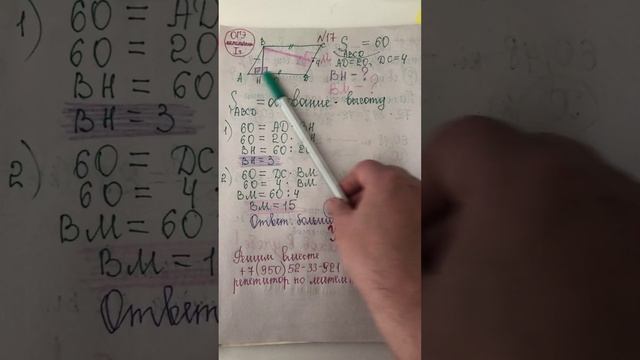 ОГЭ
математика
N17
B
C
S = 60
ABCD
AD=20, DC=4
A
H
D
M
BH = ?
BM = ?
S = основание · высоту
ABCD
1) 60 = AD ·
60 = 20 ·
BH = 60 :
BH = 3
2) 60 = DC · BM
60 = 4 · BM
BM = 60 : 4
BM = 15
Ответ:
Решим вместе
+7(950)52-33-921
репетитор по
1) 60 = AD
60 = 20
BH = 60
BH = 3
2) 60 = DC
60 = 4
BM = 60
BM = 1
Ответ